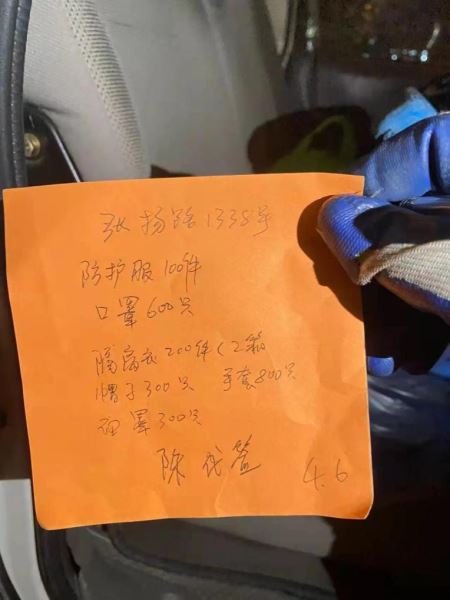 张扬路1338号
防护服100件
口罩600只
隔离衣200件(2箱
帽子300只 手套800只
面罩300只
陈 代签 4.6